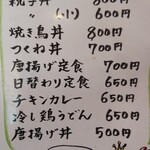 親子丼 800円
〃 (小) 600円
焼き鳥丼 800円
つくね丼 700円
唐揚げ定食 700円
日替わり定食 650円
チキンカレー 650円
冷し鶏うどん 650円
唐揚げ丼 500円